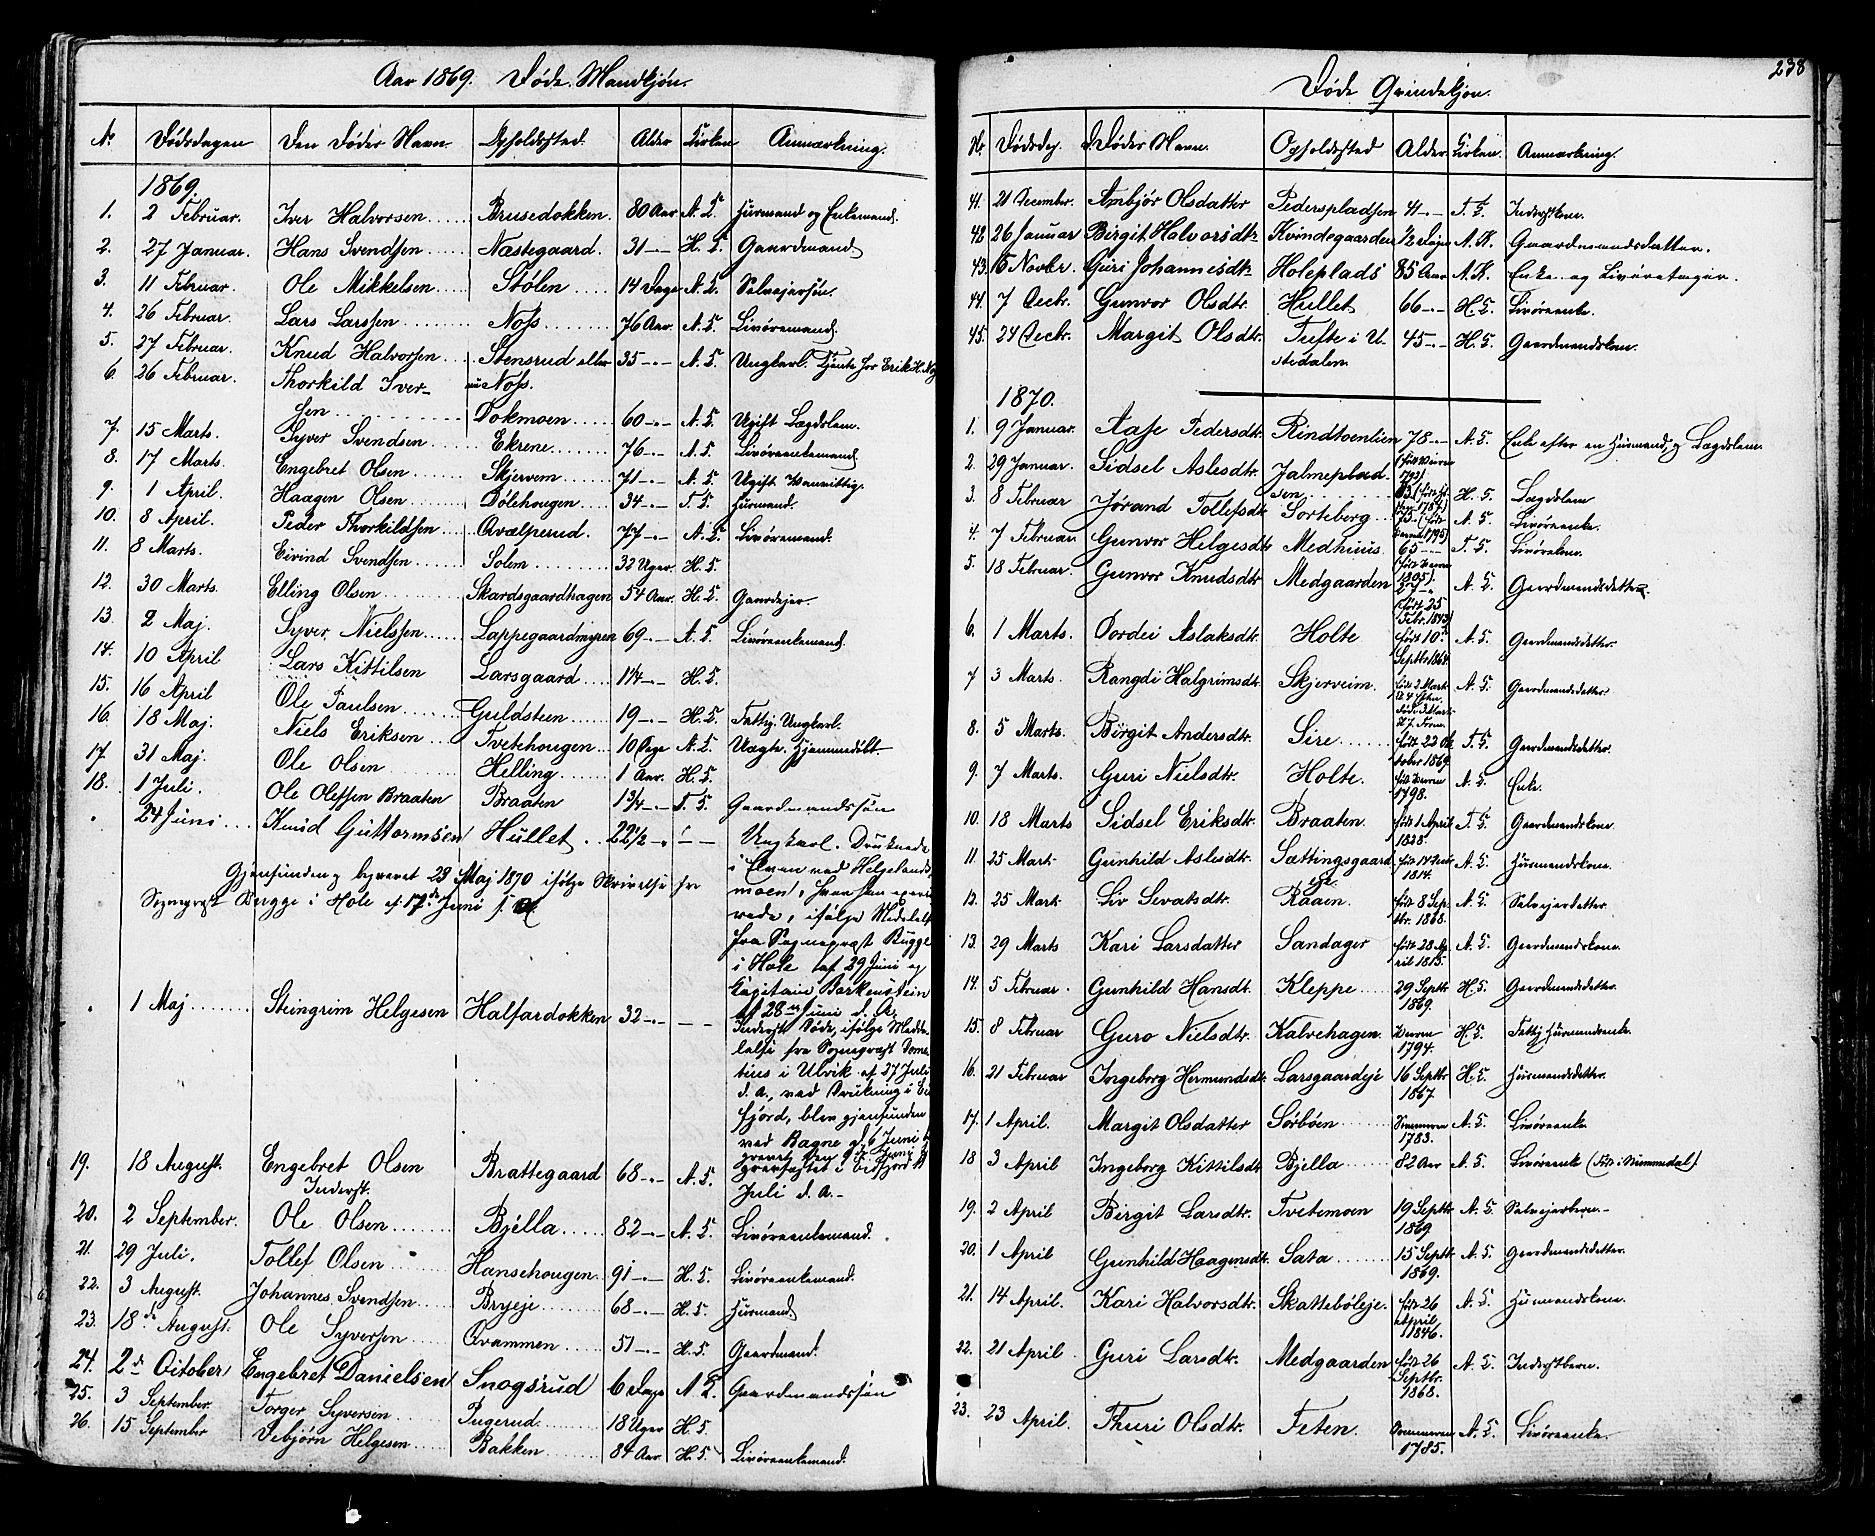 Aar 1869. Døde Mandkjøn.
No Dødsdagen Den Dødes Navn Opholdssted. Alder Kirken Anmærkning.
1869.
1. 2 Februar. Iver Halvorsen Brusedokken. 80 Aar A. K. Huusmand og Enkemand.
2. 27 Januar. Hans Svendsen Næstegaard. 31 H. K. Gaardmand
3. 11 Februar. Ole Mikkelsen Stølen 14 Dage A. K. Selvejersøn.
4. 26 Februar. Lars Larssen Noss 76 Aar A. K. Livøremand
5. 27 Februar. Knud Halvorsen Stensrud eller Noss. 35 A. K. Ungkarl. Tjente hos Erik H. Noss
6. 26 Februar. Thorkild Iver-
sen Dokmoen 60 A. K. Ugift Lægdslem.
7. 15 Marts. Syver Svendsen Ekrene 76 A. K. Livøreenkemand
8. 17 Marts. Engebret Olsen Skjervem 71 A. K. Ugift Vanvittig.
9. 1 April. Haagen Olsen Dølehougen 34 T. K. Huusmand.
10. 8 April. Peder Thorkildsen Qvælperud. 77 A. K. Livøremand.
11. 8 Marts. Eivind Svendsen Solem 32 Uger H. K.
12. 30 Marts. Elling Olsen Skardsgaardhagen 54 Aar. H. K. Gaardejer.
13. 2 Maj. Syver Nielssen Lappegaardmyren 69 A. K. Livøreenkemand.
14. 10 April Lars Kittilsen Larsgaard 1 1/4 H. K.
15. 16 April Ole Paulsen Guldsteen 19 H. K. Fattig. Ungkarl.
16. 18 Maj. Niels Eriksen Tvetehougen 10 Dage A. K. Uægte. Hjemmedøbt.
17. 31 Maj. Ole Olsen Helling 1 Aar. H. K.
18. 1 Juli. Ole Olessen Braaten Braaten 1 3/4 T. K. Gaardmandssøn
24 Juni Knud Guttormsen Hullet 22 1/2 Ungkarl. Druknede
i Elven ved Helgelands-
moen, hvor han exerce-
rede, ifølge Meddelelse
fra Sognepræst Bugge
i Hole af 29 Juni og
Kapitain Barkenstein
af 28de Juni d. A.
Gjenfunden og begravet 23 Maj 1870 ifølge Skrivelse fra
Sognepræst Bugge i Hole af 17de Juni
1 Maj Steingrim Helgesen Halfardokken 32 Inderst Døde, ifølge Medde-
lelse fra Sognepræst
i Ulvik af 27 Juli
d. A., ved Drukning i Ei-
fjord, blev gjenfunden
ved Bagne d. 6 Juni be-
gravet den 9de Juni
Grundfæstet i Eidfjord
Juli d. A.
19. 18 August. Engebret Olsen
Inderst. Brattegaard 68 A. K.
20. 2 September. Ole Olsen Bjella 82 A. K. Livøreenkemand.
21. 29 Juli. Tollef Olsen Hansehougen 91 H. K. Livøreenkemand.
22. 3 August. Johannes Svendsen Bryeje 68 H. K. Huusmand
23. 18de August. Ole Syversen Qvammen 51 H. K. Gaardmand.
24. 2de October Engebret Danielsen Snogsrud 6 Dage A. K. Gaardmandssøn
25. 3 September. Torger Syversen Pugerud 18 Uger H. K.
26. 15 September Sebjørn Helgesen Bakken 84 Aar. H. K. Livøreenkemand.
238
Døde Qvindekjøn.
Nr Dødsdag. D. Dødes Navn. Opholdssted Alder Kirken. Anmærkning.
41. 21 December. Anbjør Olsdatter Pederspladsen 41 T. K. Inderstkone.
42. 26 Januar Birgit Halvorsdtr. Kvindegaarden 1/2 Dag A. K. Gaardmandsdatter.
43. 15 Novbr. Guri Johannesdtr. Holeplads 85 Aar A. K. Enke og Livøretager.
44. 7 Decbr. Gunvor Olsdtr. Hullet 66 H. K. Livøreenke.
45. 24 Decbr. Margit Olsdtr. Tufte i U-
stedalen. 45 H. K. Gaardmandskone.
1870.
1. 9 Januar. Aase Pedersdtr. Rindtoenlien 78 A. K. Enke efter en Huusmand, og Lægdslem
2. 29 Januar. Sidsel Aslesdtr. Jalmeplad-
sen H. K. Lægdslem
3. 8 Februar Jørand Tollefsdtr. Sorteberg 75 A. K. Livøreenke.
4. 7 Februar Gunvor Helgesdtr Medhuus. 65 T. K. Livørekone.
5. 18 Februar. Gunvor Knudsdtr. Medgaarden 27 født 25 Febr. 1843 A. K. Gaardmandsdatter
6. 1 Marts. Dordei Aslaksdtr. Holte født 10de Septbr 1868 A. K. Gaardmandsdatter.
7 3 Marts. Rangdi Halgrimsdtr. Skjerveim. født 3 Marts A. K. Gaardmandsdatter
8. 5 Marts. Birgit Andersdtr. Sire født 22 Oktober 1869. T. K. Gaardmandsdatter.
9. 7 Marts. Guri Nielsdtr. Holte. 1798. A. K. Enke.
10. 18 Marts Sidsel Eriksdtr. Braaten. født 1 April 1828. T. K. Gaardmandskone
11. 25 Marts Gunhild Aslesdtr. Sættingsgaard eje 1814. A. K. Huusmandskone.
12. 25 Marts Liv Sevatsdtr. Raaen. født 8 Septbr. 1868. A. K. Selvejerdatter.
13. 29 Marts Kari Larsdatter Sandager født 28 April 1815. A. K. Gaardmandskone.
14. 5 Februar. Gunhild Hansdt. Kleppe 29 Septbr 1869. H. K. Gaardmandsdatter.
15. 8 Februar Guro Nielsdtr. Kalvehagen. 1794. H. K. Fattig Huusmandsenke.
16. 21 Februar Ingeborg Hermundsdtr. Larsgaardeje 16 Septbr 1867. H. K. Huusmandsdatter.
17. 1 April. Margit Olsdatter Sørbøen Sommeren 1783. A. K. Livøreenke
18 3 April Ingeborg Kittilsdtr Bjella 82 Aar A. K. Livøreenke (Født i Nummedal)
19. 2 April Birgit Larsdtr. Tvetemoen 19 Septbr 1869 A. K. Selvejerbarn.
20. 1 April Gunhild Haagensdtr. Sata 15 Septbr 1869. A. K. Gaardmandsdatter.
21. 14 April. Kari Halvorsdtr. Skattebøleje. født 26 April 1846. A. K. Huusmandskone.
22. 21 April Guri Larsdtr. Medgaarden født 26 Septbr. 1868. A. K. Inderstbarn.
23. 23 April. Thuri Olsdtr. Feten. Sommeren 1785. A. K. Livøreenke.